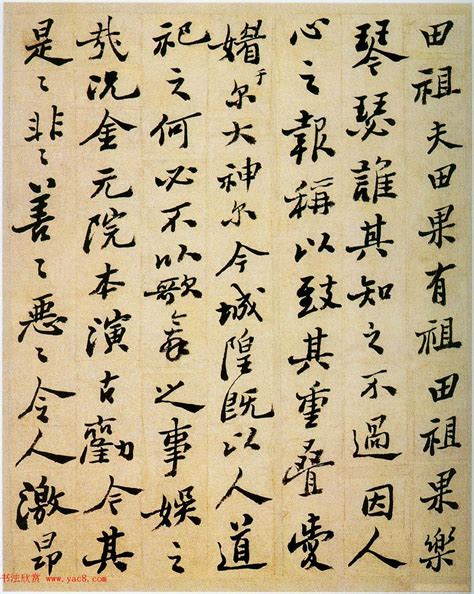 田祖夫田果有祖田祖果樂
琴瑟誰其知之不過因人
心之報稱以致其重疊愛
媚于尔大神尔今城隍既以人道
祀之何必不以歌舞之事娱之
哉況金元院本演古勸今其
是〻非〻善〻惡〻令人激昂
书法欣赏 www.yac8.com